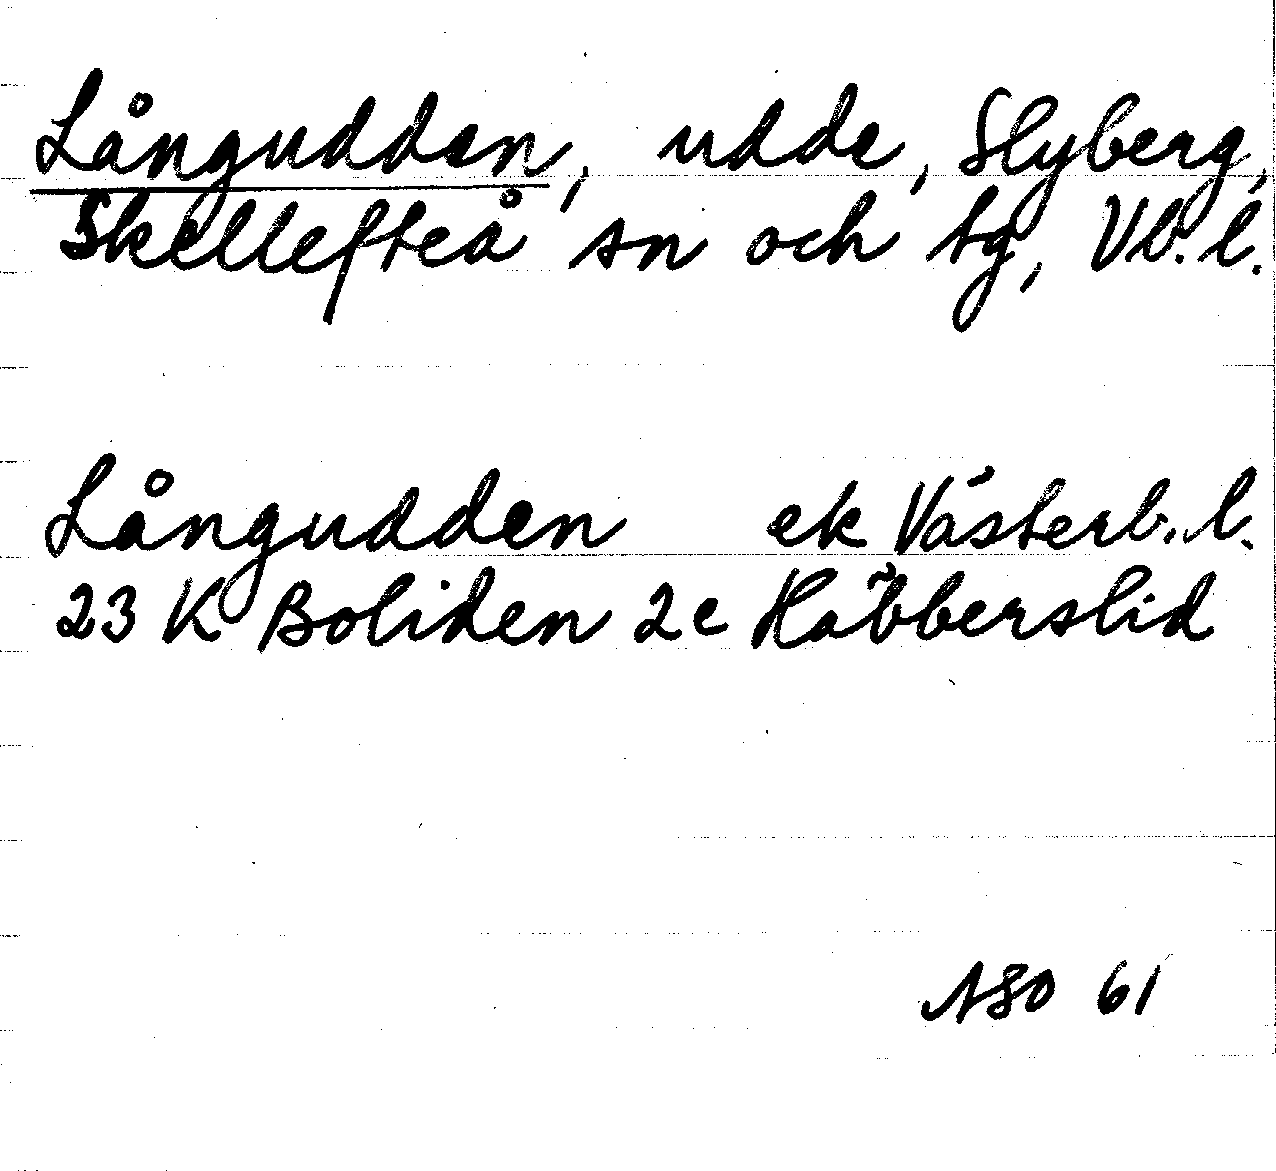 Långudden, udde, Slyberg,
Skellefteå sn och tg, Vb. l.
Långudden ek Västerb. l.
23 K Boliden 2e Häbberslid
ASO 61